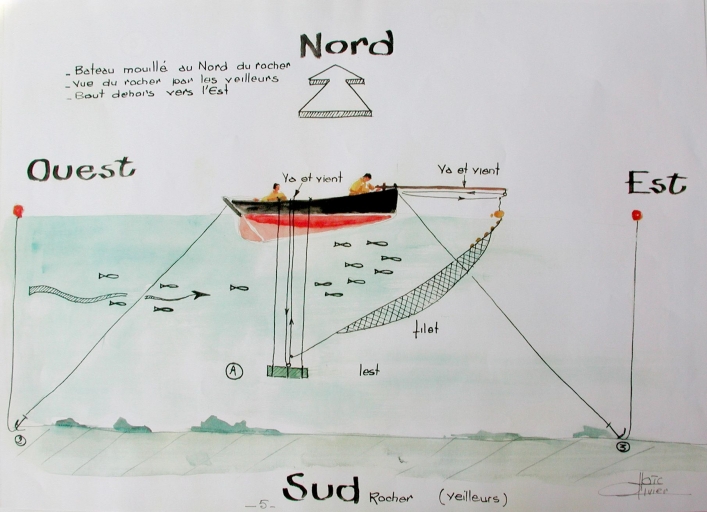 Nord
- Bateau mouillé au Nord du rocher
- Vue du rocher par les veilleurs
- Bout dehors vers l'Est
Ouest
Va et vient
Va et vient
Est
filet
A
lest
3
Sud Rocher (veilleurs)
- 5 -